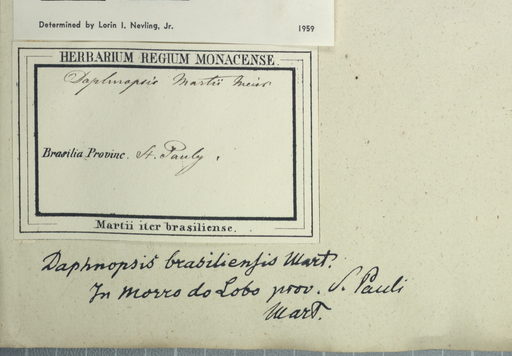 Determined by Lorin I. Nevling, Jr. 1959
HERBARIUM REGIUM MONACENSE.
Daphnopsis Martii Meisn
Brasilia Provinc. St. Pauly.
Martii iter brasiliense.
Daphnopsis brasiliensis Mart.
In Morro do Lobo prov. S. Pauli
Mart.